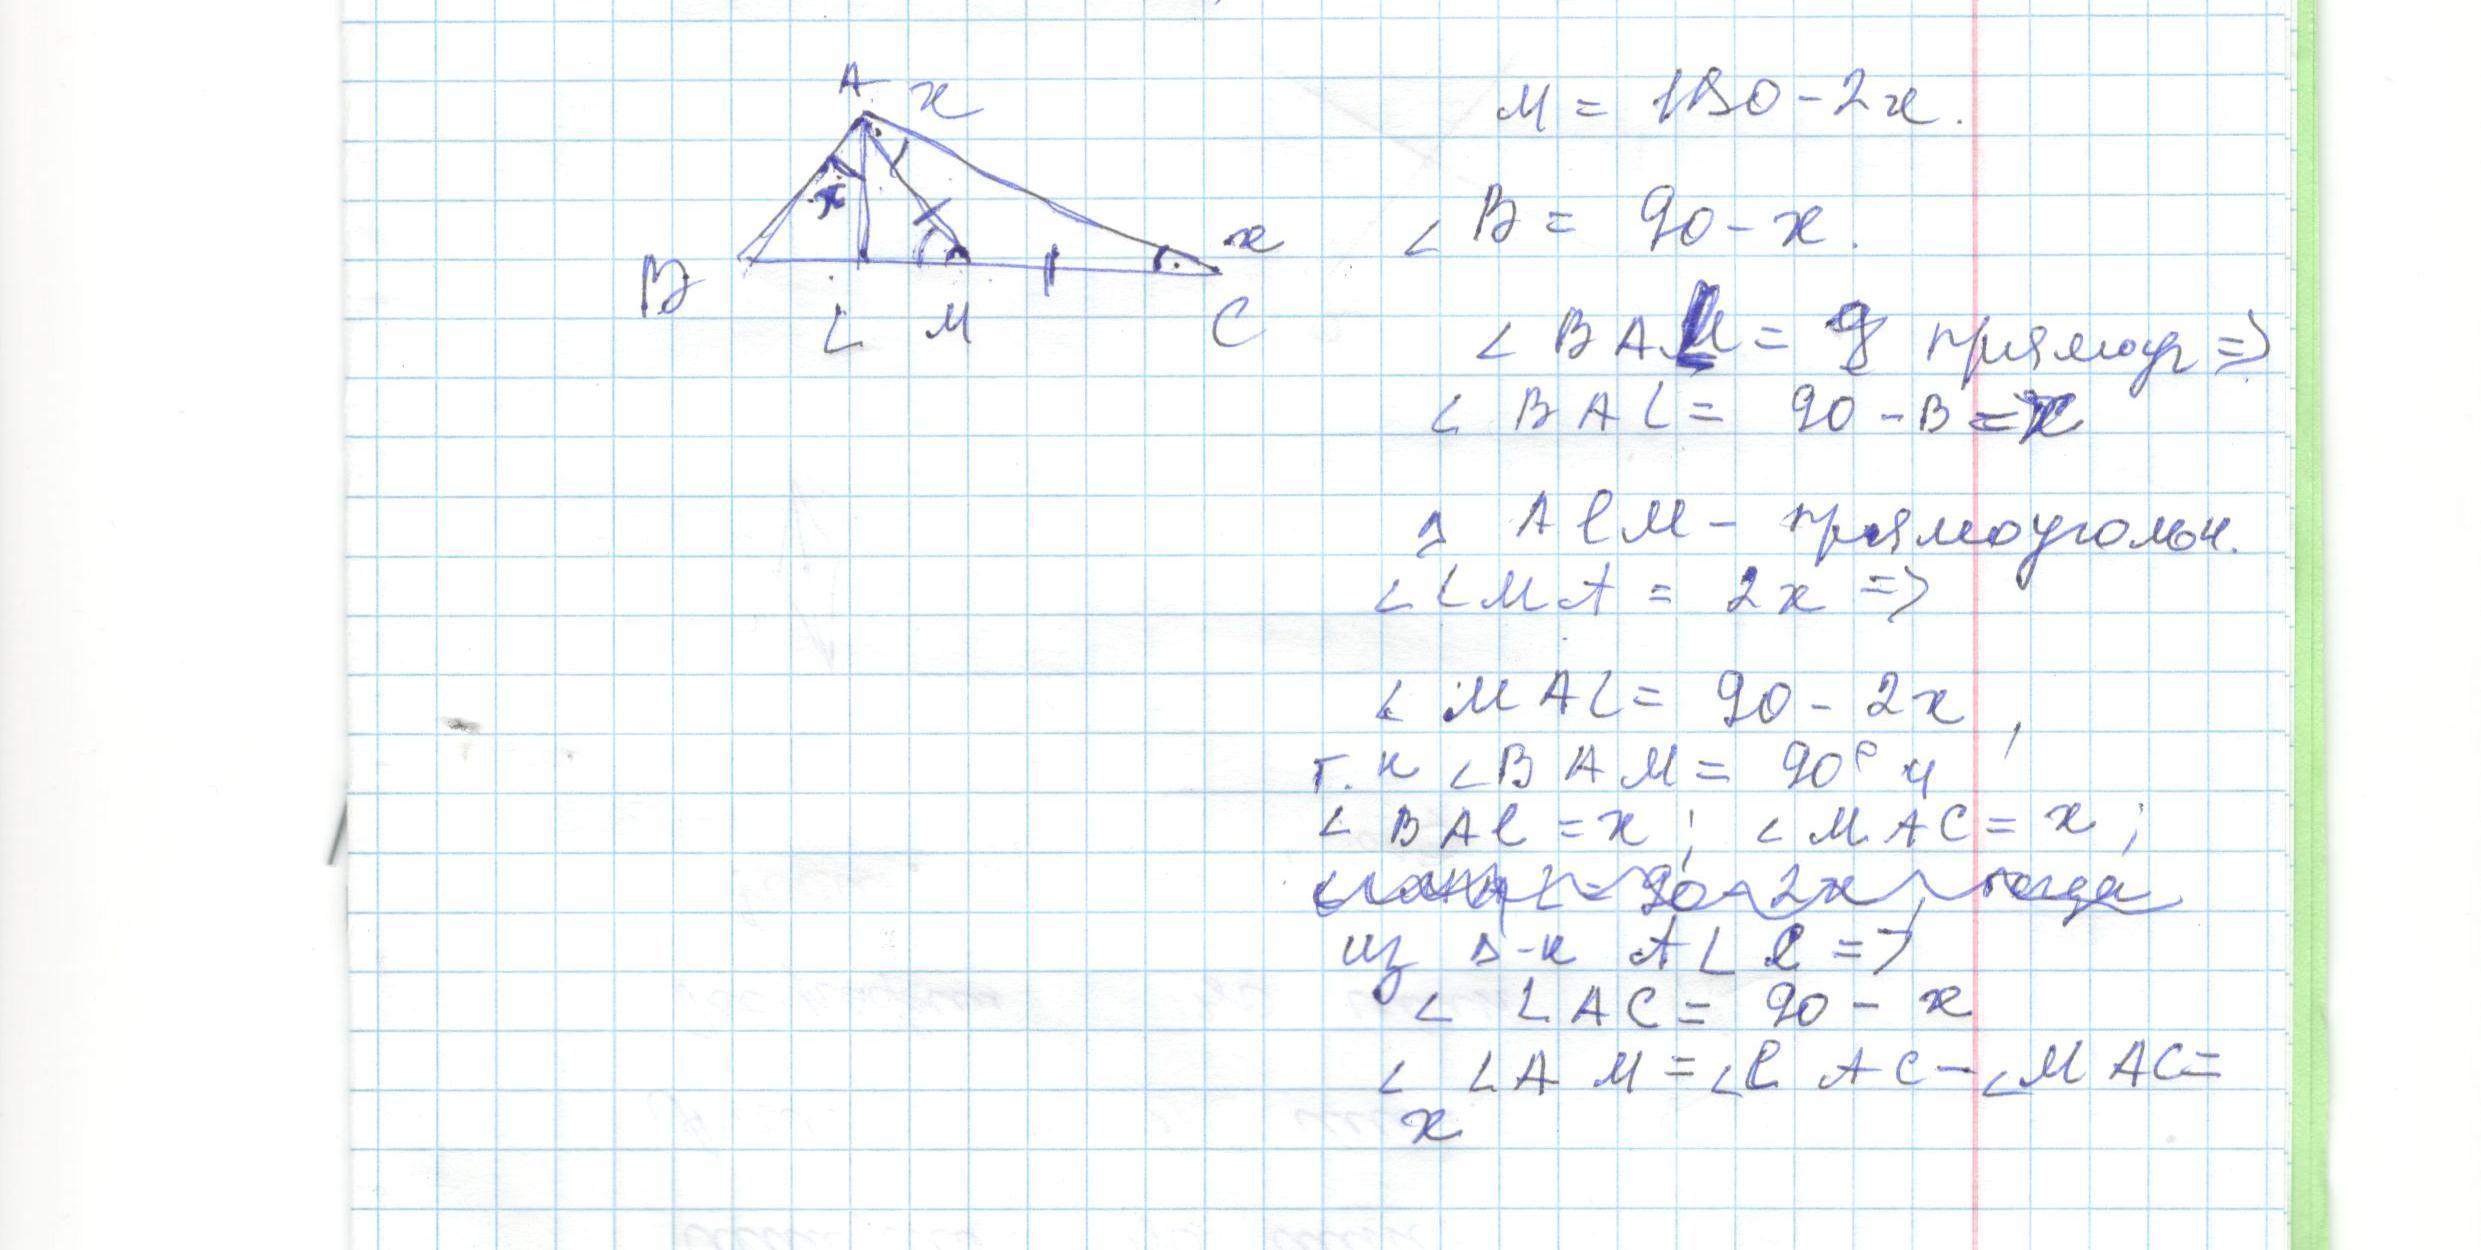 A x
x
x
B L M C
M = 180 - 2x.
∠ B = 90 - x.
∠ BAL = прямоуг =>
∠ BAL = 90 - B = x
Δ ALM - прямоугольн.
∠ LMA = 2x =>
∠ MAL = 90 - 2x,
т. к ∠BAM = 90° и
∠ BAL = x; ∠ MAC = x;
L = 90 - 2x, тогда
из Δ-к ALC =>
∠ LAC = 90 - x
∠ LAM = ∠LAC - ∠MAC =
x